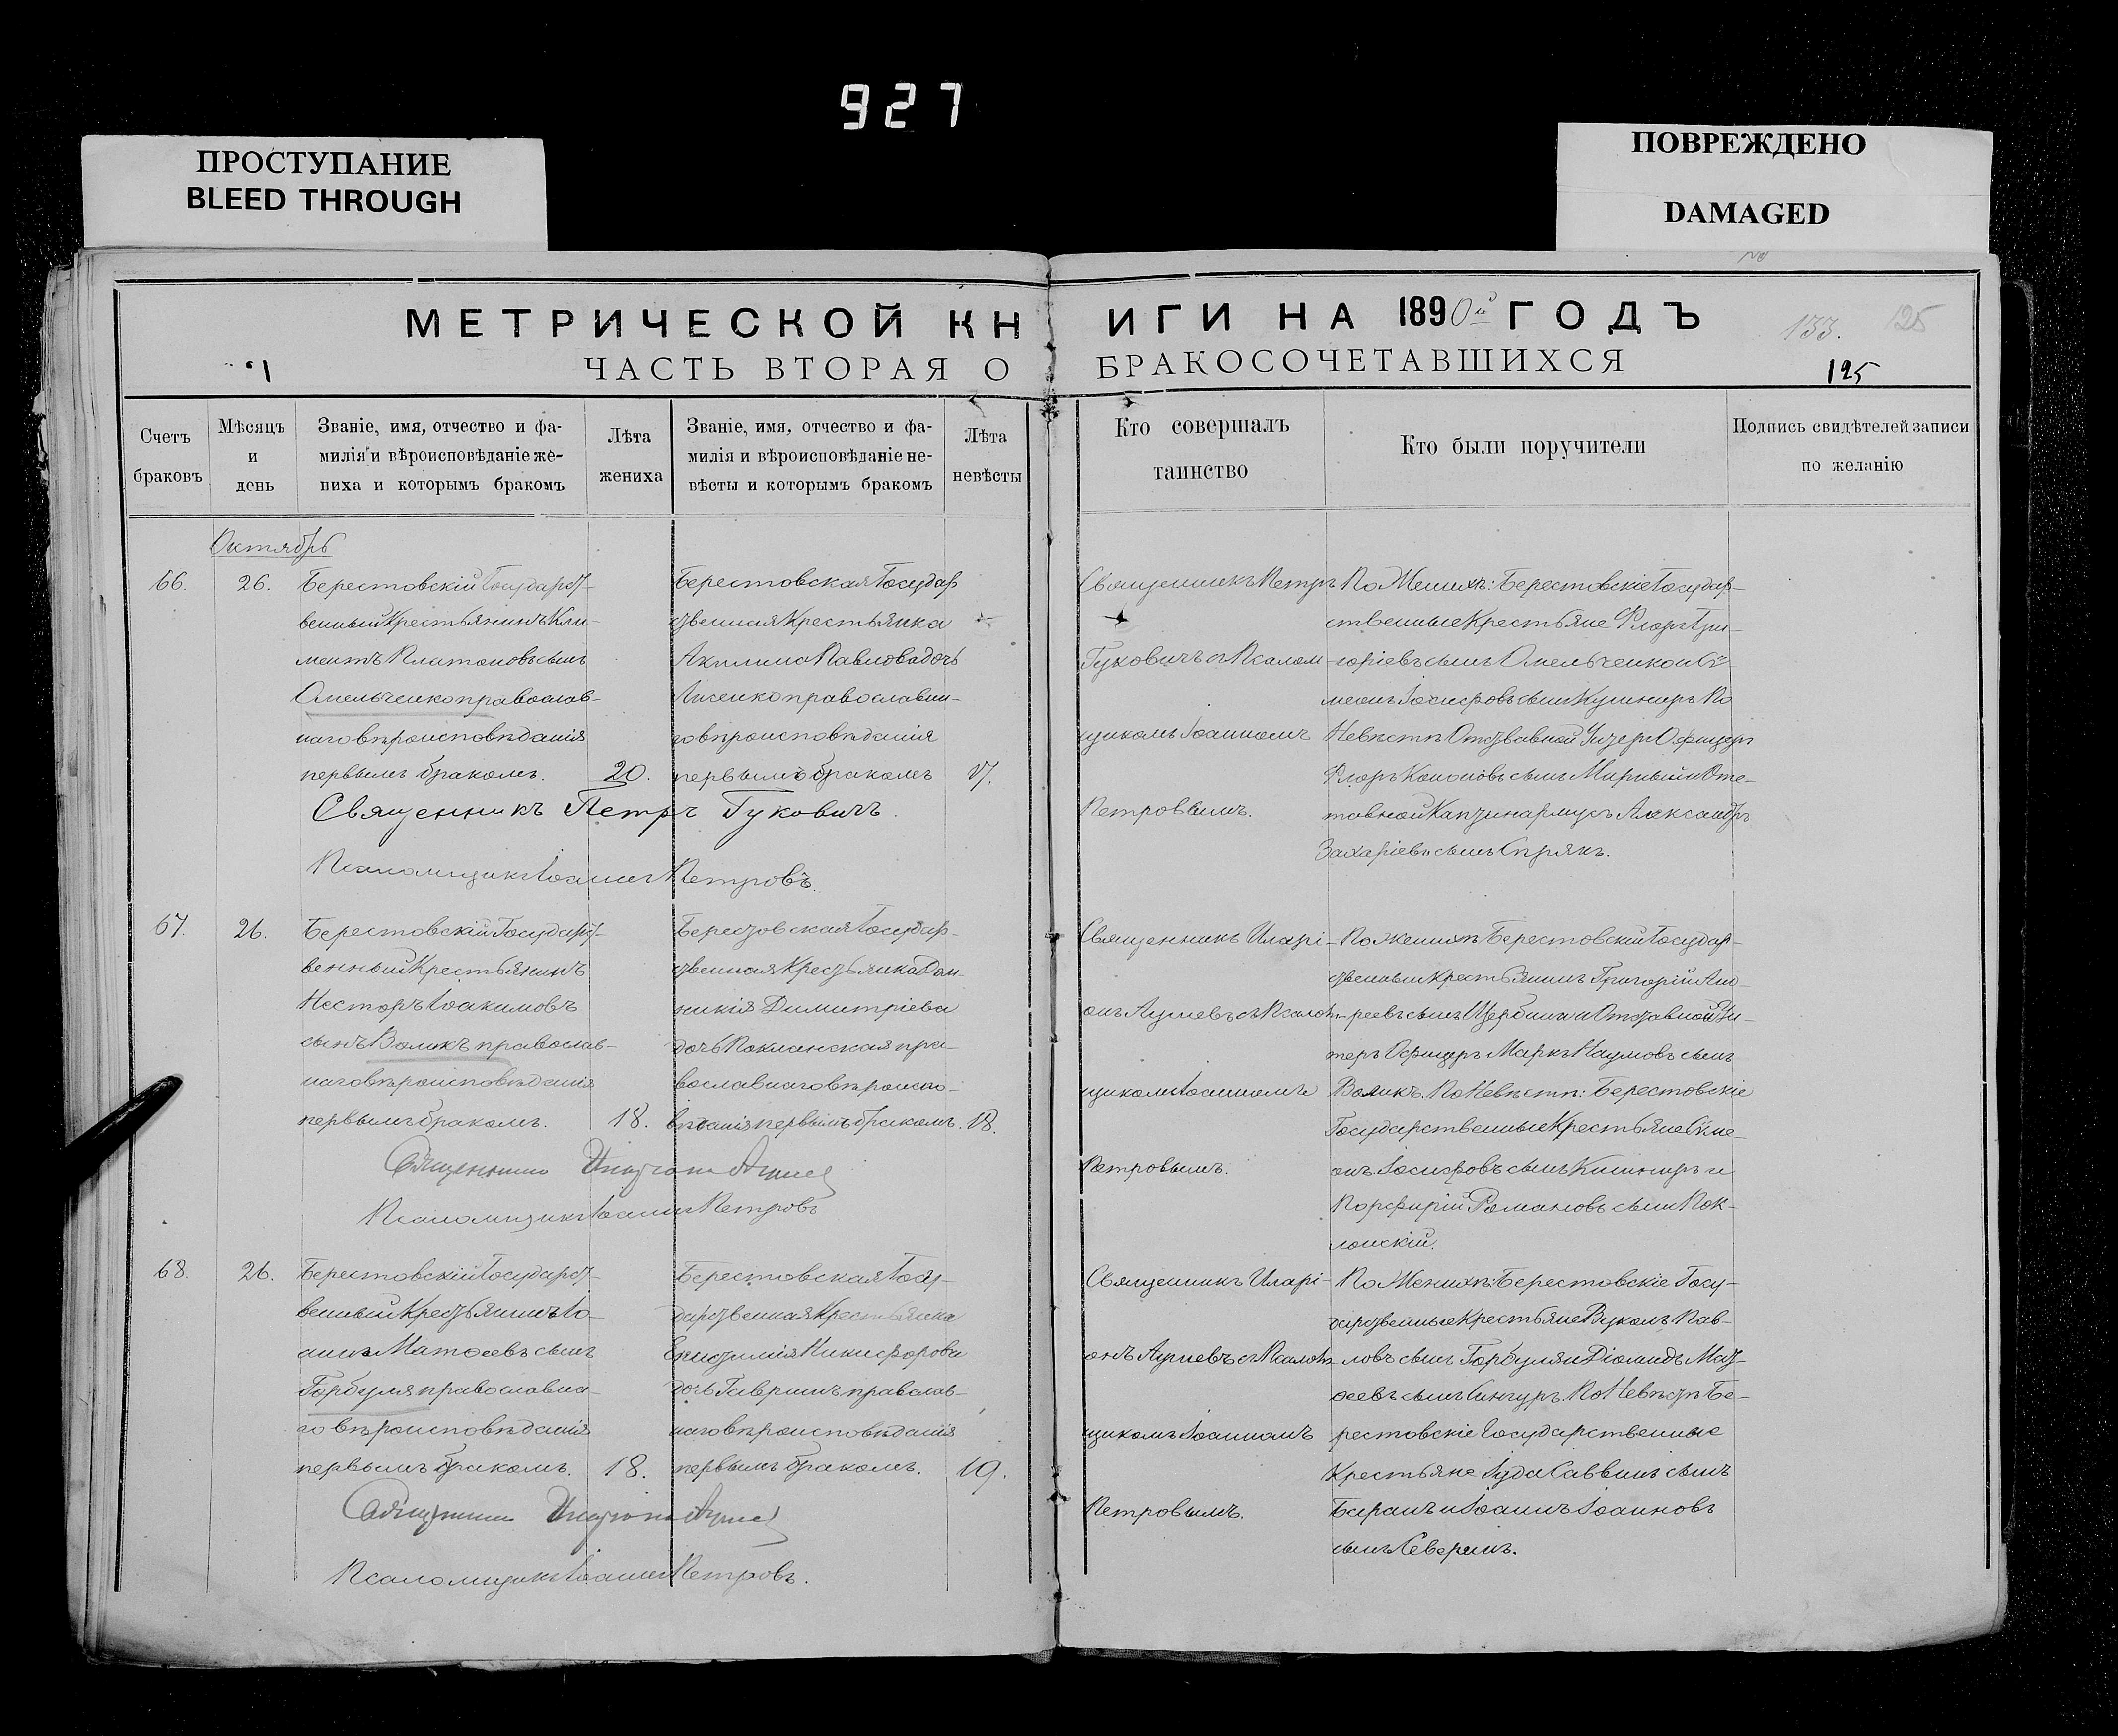 927
ПРОСТУПАНИЕ
BLEED THROUGH
ПОВРЕЖДЕНО
DAMAGED
МЕТРИЧЕСКОЙ КНИГИ НА 1890й ГОДЪ
133.
125
ЧАСТЬ ВТОРАЯ О БРАКОСОЧЕТАВШИХСЯ
125
Счетъ
браковъ
Мѣсяцъ
и
день
Званіе, имя, отчество и фа-
милія и вѣроисповѣданіе же-
ниха и которымъ бракомъ
Лѣта
жениха
Званіе, имя, отчество и фа-
милія и вѣроисповѣданіе не-
вѣсты и которымъ бракомъ
Лѣта
невѣсты
Кто совершалъ
таинство
Кто были поручители
Подпись свидѣтелей записи
по желанію
Октябрь
66.
26.
Берестовскій Государст-
венный Крестьянинъ Кли-
ментъ Платоновъ сынъ
Омельченко православ-
наго вѣроисповѣданія
первымъ бракомъ.
20.
Берестовская Государ
ственная Крестьянка
Акилина Павлова дочь
Лисенко православна-
го вѣроисповѣданія
первымъ бракомъ
17.
Священникъ Петръ
Гуковичъ съ Псалом-
щикомъ Іоанномъ
Петровымъ.
По Женихѣ: Берестовскіе Государ-
ственные Крестьяне Флоръ Гри-
горіевъ сынъ Омельченко и Сѵ-
меонъ Іосифовъ сынъ Кушниръ По
Невѣстѣ Отставной Унтеръ Офицеръ
Флоръ Кононовъ сынъ Мирный и Отс-
тавной Каптинармусъ Александръ
Захаріевъ сынъ Спрякъ.
Священникъ Петръ Гуковичъ.
Псаломщикъ Іоаннъ Петровъ.
67.
26.
Берестовскій Государст-
венный Крестьянинъ
Несторъ Іоакимовъ
сынъ Воликъ православ-
наго вѣроисповѣданія
первымъ бракомъ.
18.
Берестовская Государ-
ственная Крестьянка Дом-
никія Димитріева
дочь Поклонская пра-
вославнаго вѣроиспо-
вѣданія первымъ бракомъ.
18.
Священникъ Иларі-
онъ съ Псалом-
щикомъ Іоанномъ
Петровымъ.
По женихѣ Берестовскій Государ-
ственный Крестьянинъ Григорій Анд-
реевъ сынъ Щербина и Отставной Ун-
теръ Офицеръ Маркъ Наумовъ сынъ
Воликъ. По Невѣстѣ: Берестовскіе
Государственные Крестьяне Сѵме-
онъ Іосифовъ сынъ Кушниръ и
Порфирій Романовъ сынъ Пок-
лонскій.
Священникъ Иларіонъ
Псаломщикъ Іоаннъ Петровъ
68.
26.
Берестовскій Государст-
венный Крестьянинъ Іо-
аннъ Матѳеевъ сынъ
Горбуля православна-
го вѣроисповѣданія
первымъ бракомъ.
18.
Берестовская Госу-
дарственная Крестьянка
Никифорова
дочь Гавришъ православ-
наго вѣроисповѣданія
первымъ бракомъ.
19.
Священникъ Иларі-
онъ съ Псалом-
щикомъ Іоанномъ
Петровымъ.
По Женихѣ: Берестовскіе Госу-
дарственные Крестьяне Вуколъ Пав-
ловъ сынъ Горбуля и Діомидъ Мат-
ѳеевъ сынъ По Невѣстѣ Бе-
рестовскіе Государственные
Крестьяне Іуда Саввинъ сынъ
Баранъ и Іоаннъ Іоанновъ
сынъ Северинъ.
Священникъ Иларіонъ
Псаломщикъ Іоаннъ Петровъ.